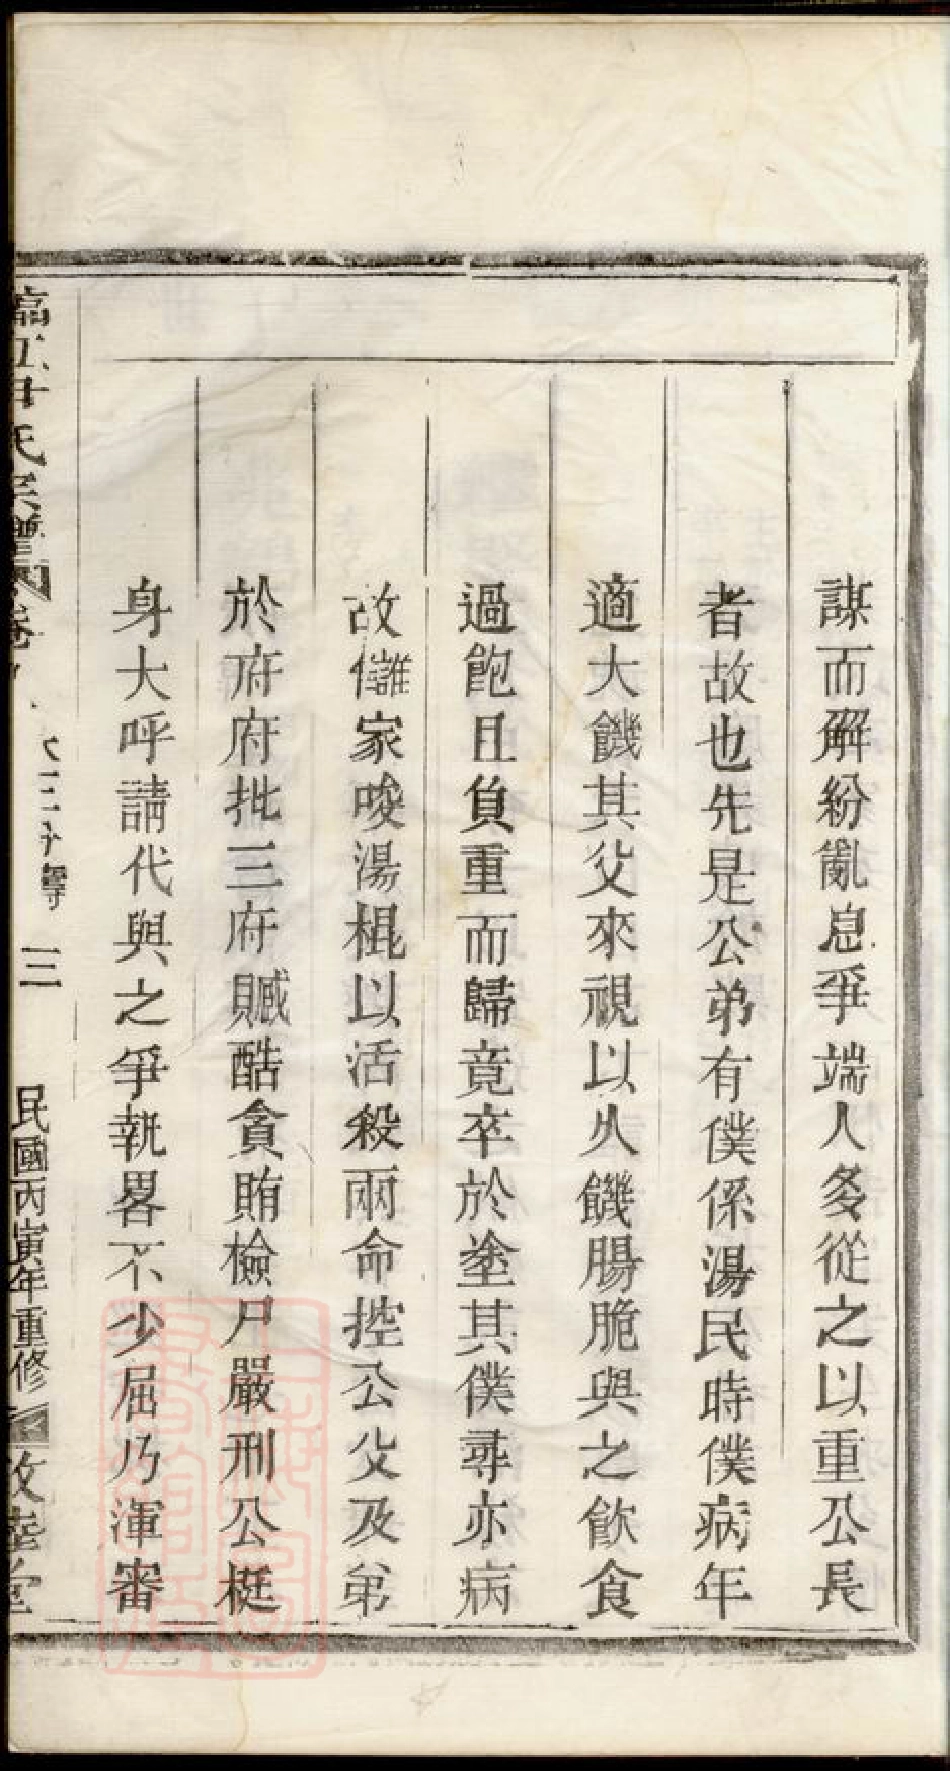 謀而解紛亂息爭端人多從之以重公長
者故也先是公弟有僕係湯民時僕病年
適大饑其父來視以久饑腸脆與之飲食
過飽且負重而歸竟卒於塗其僕尋亦病
故讎家唆湯棍以活殺兩命控公父及弟
於府府批三府贓酷貪賄檢尸嚴刑公梃
身大呼請代與之爭執畧不少屈乃渾審
氏宗譜 卷 三 民國丙寅年重修 敦睦堂